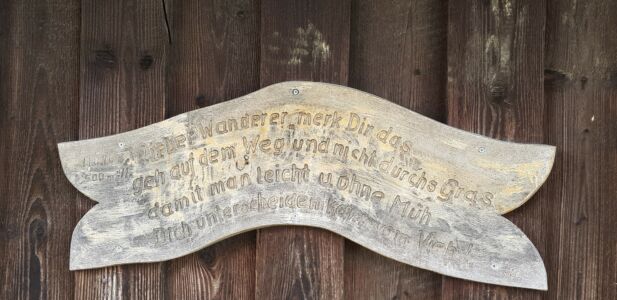 Lieber Wanderer, merk Dir das
geh auf dem Weg und nicht durchs Gras
damit man leicht u. ohne Müh
Dich unterscheiden kann vom Vieh!